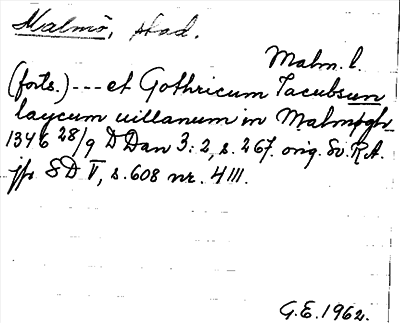 Malmö, stad.
Malm. l.
(forts.) --- et Gothricum Jacubsun
laycum uillanum in Malmøgh
1346 28/9 DDan 3:2, s. 267. orig. Sv. R.A.
jfr SD V, s. 608 nr. 4111.
G.E. 1962.